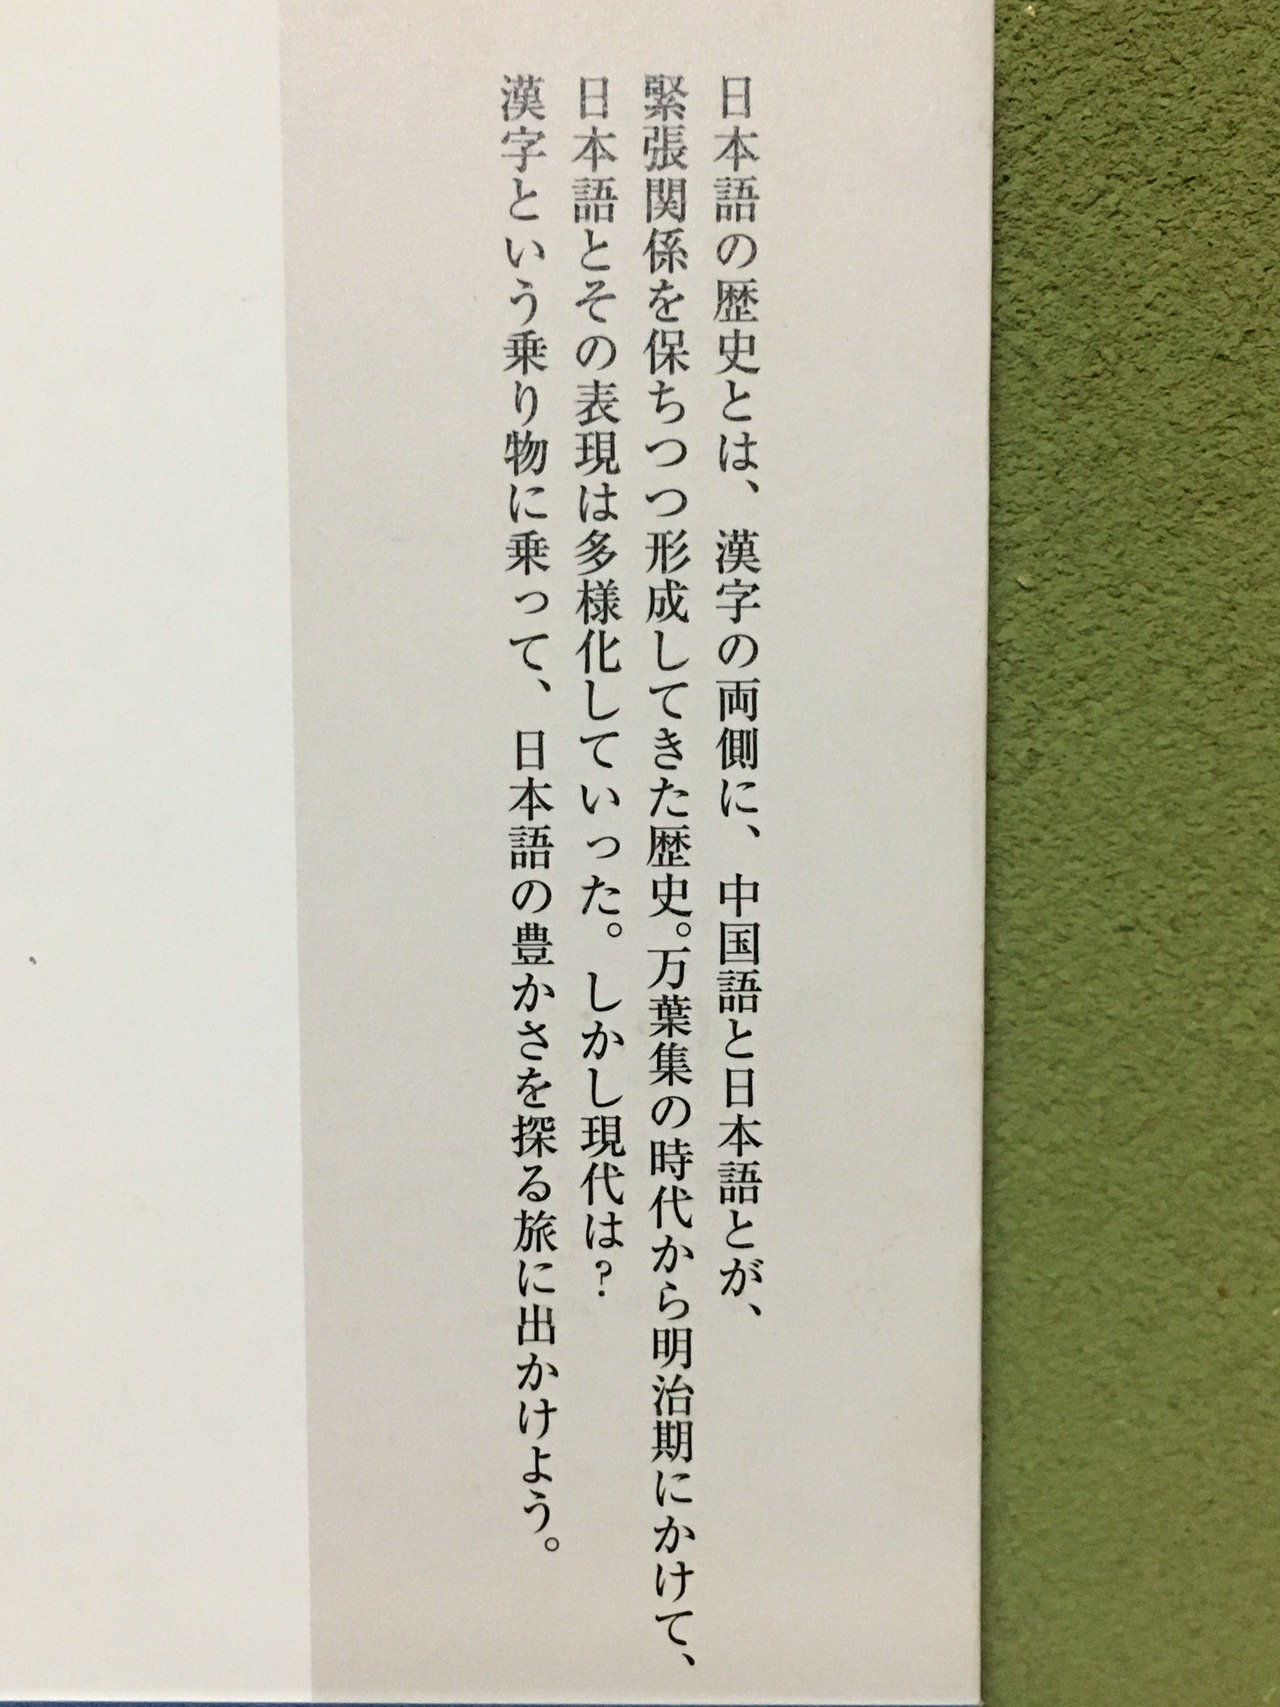 日本語の歴史とは、漢字の両側に、中国語と日本語とが、
緊張関係を保ちつつ形成してきた歴史。万葉集の時代から明治期にかけて、
日本語とその表現は多様化していった。しかし現代は?
漢字という乗り物に乗って、日本語の豊かさを探る旅に出かけよう。